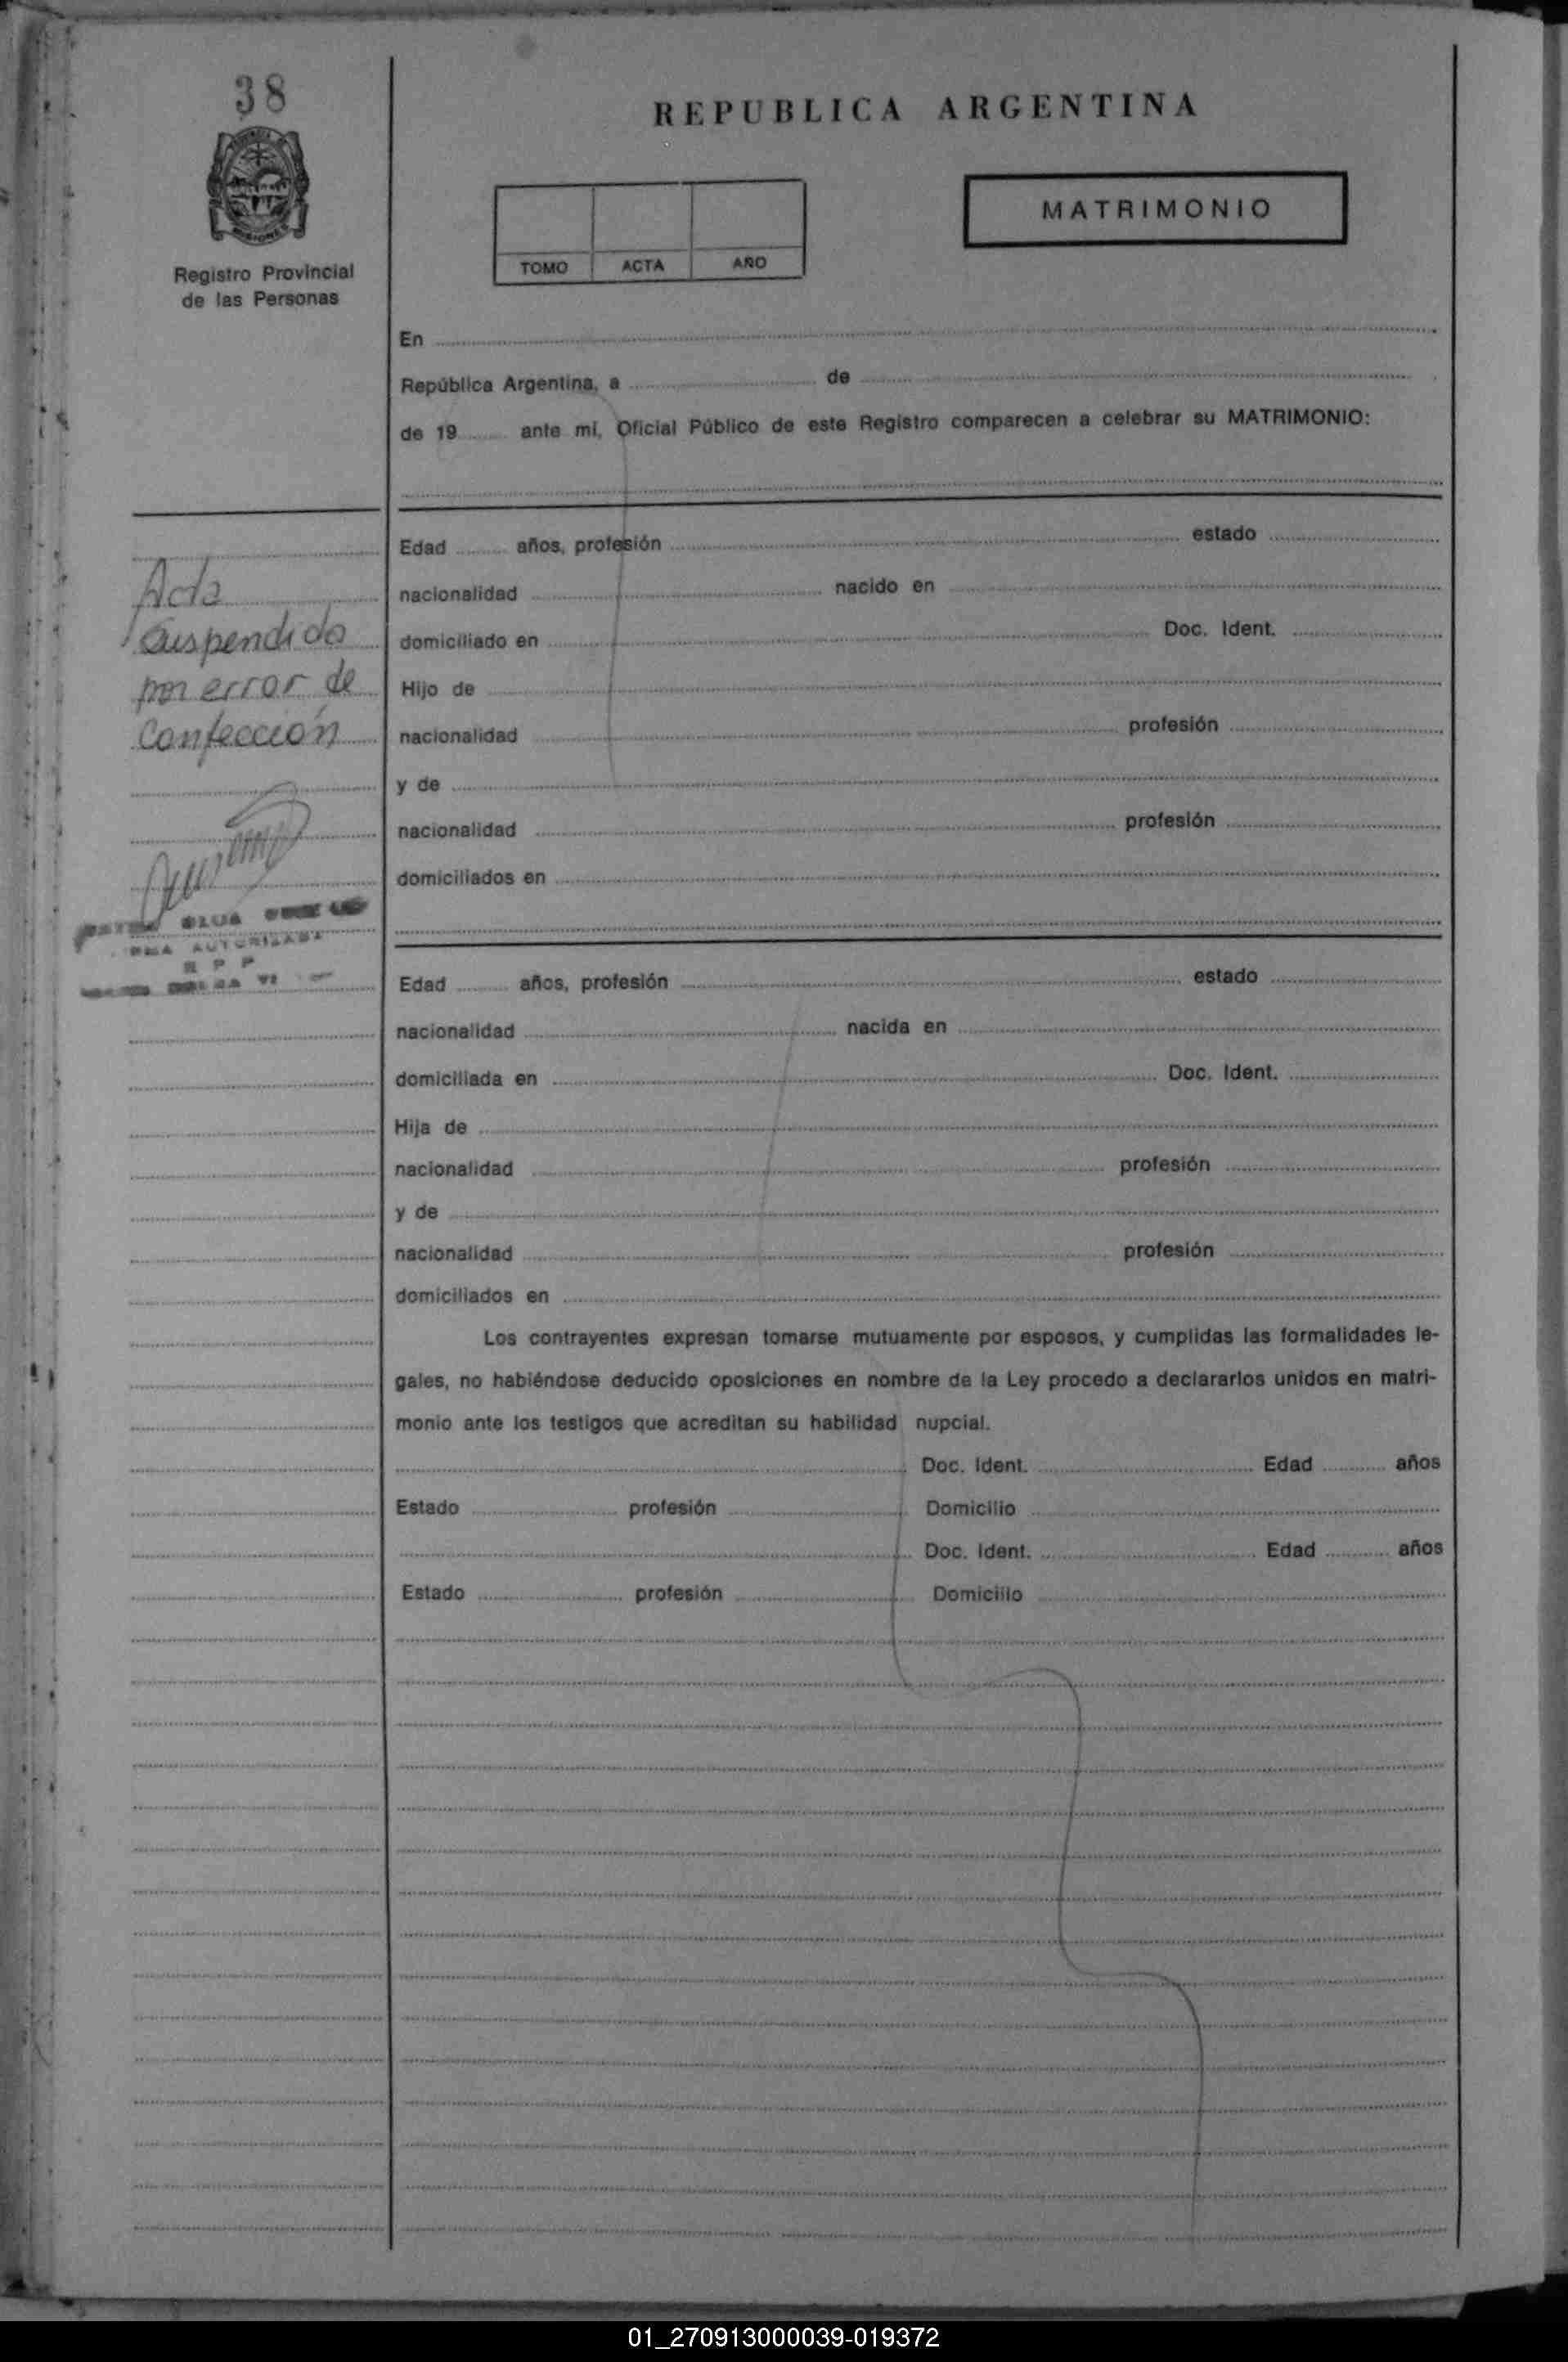 38
MISIONES
Registro Provincial
de las Personas
REPUBLICA ARGENTINA
TOMO ACTA AÑO
MATRIMONIO
En
República Argentina, a de
de 19 ante mí, Oficial Público de este Registro comparecen a celebrar su MATRIMONIO:
Edad años, profesión estado
nacionalidad nacido en
domiciliado en Doc. Ident.
Hijo de
nacionalidad profesión
y de
nacionalidad profesión
domiciliados en
Acta
suspendida
por error de
Confección
AUTORIZADA
Edad años, profesión estado
nacionalidad nacida en
domiciliada en Doc. Ident.
Hija de
nacionalidad profesión
y de
nacionalidad profesión
domiciliados en
Los contrayentes expresan tomarse mutuamente por esposos, y cumplidas las formalidades le-
gales, no habiéndose deducido oposiciones en nombre de la Ley procedo a declararlos unidos en matri-
monio ante los testigos que acreditan su habilidad nupcial.
Doc. Ident. Edad años
Estado profesión Domicilio
Doc. Ident. Edad años
Estado profesión Domicilio
01_270913000039-019372